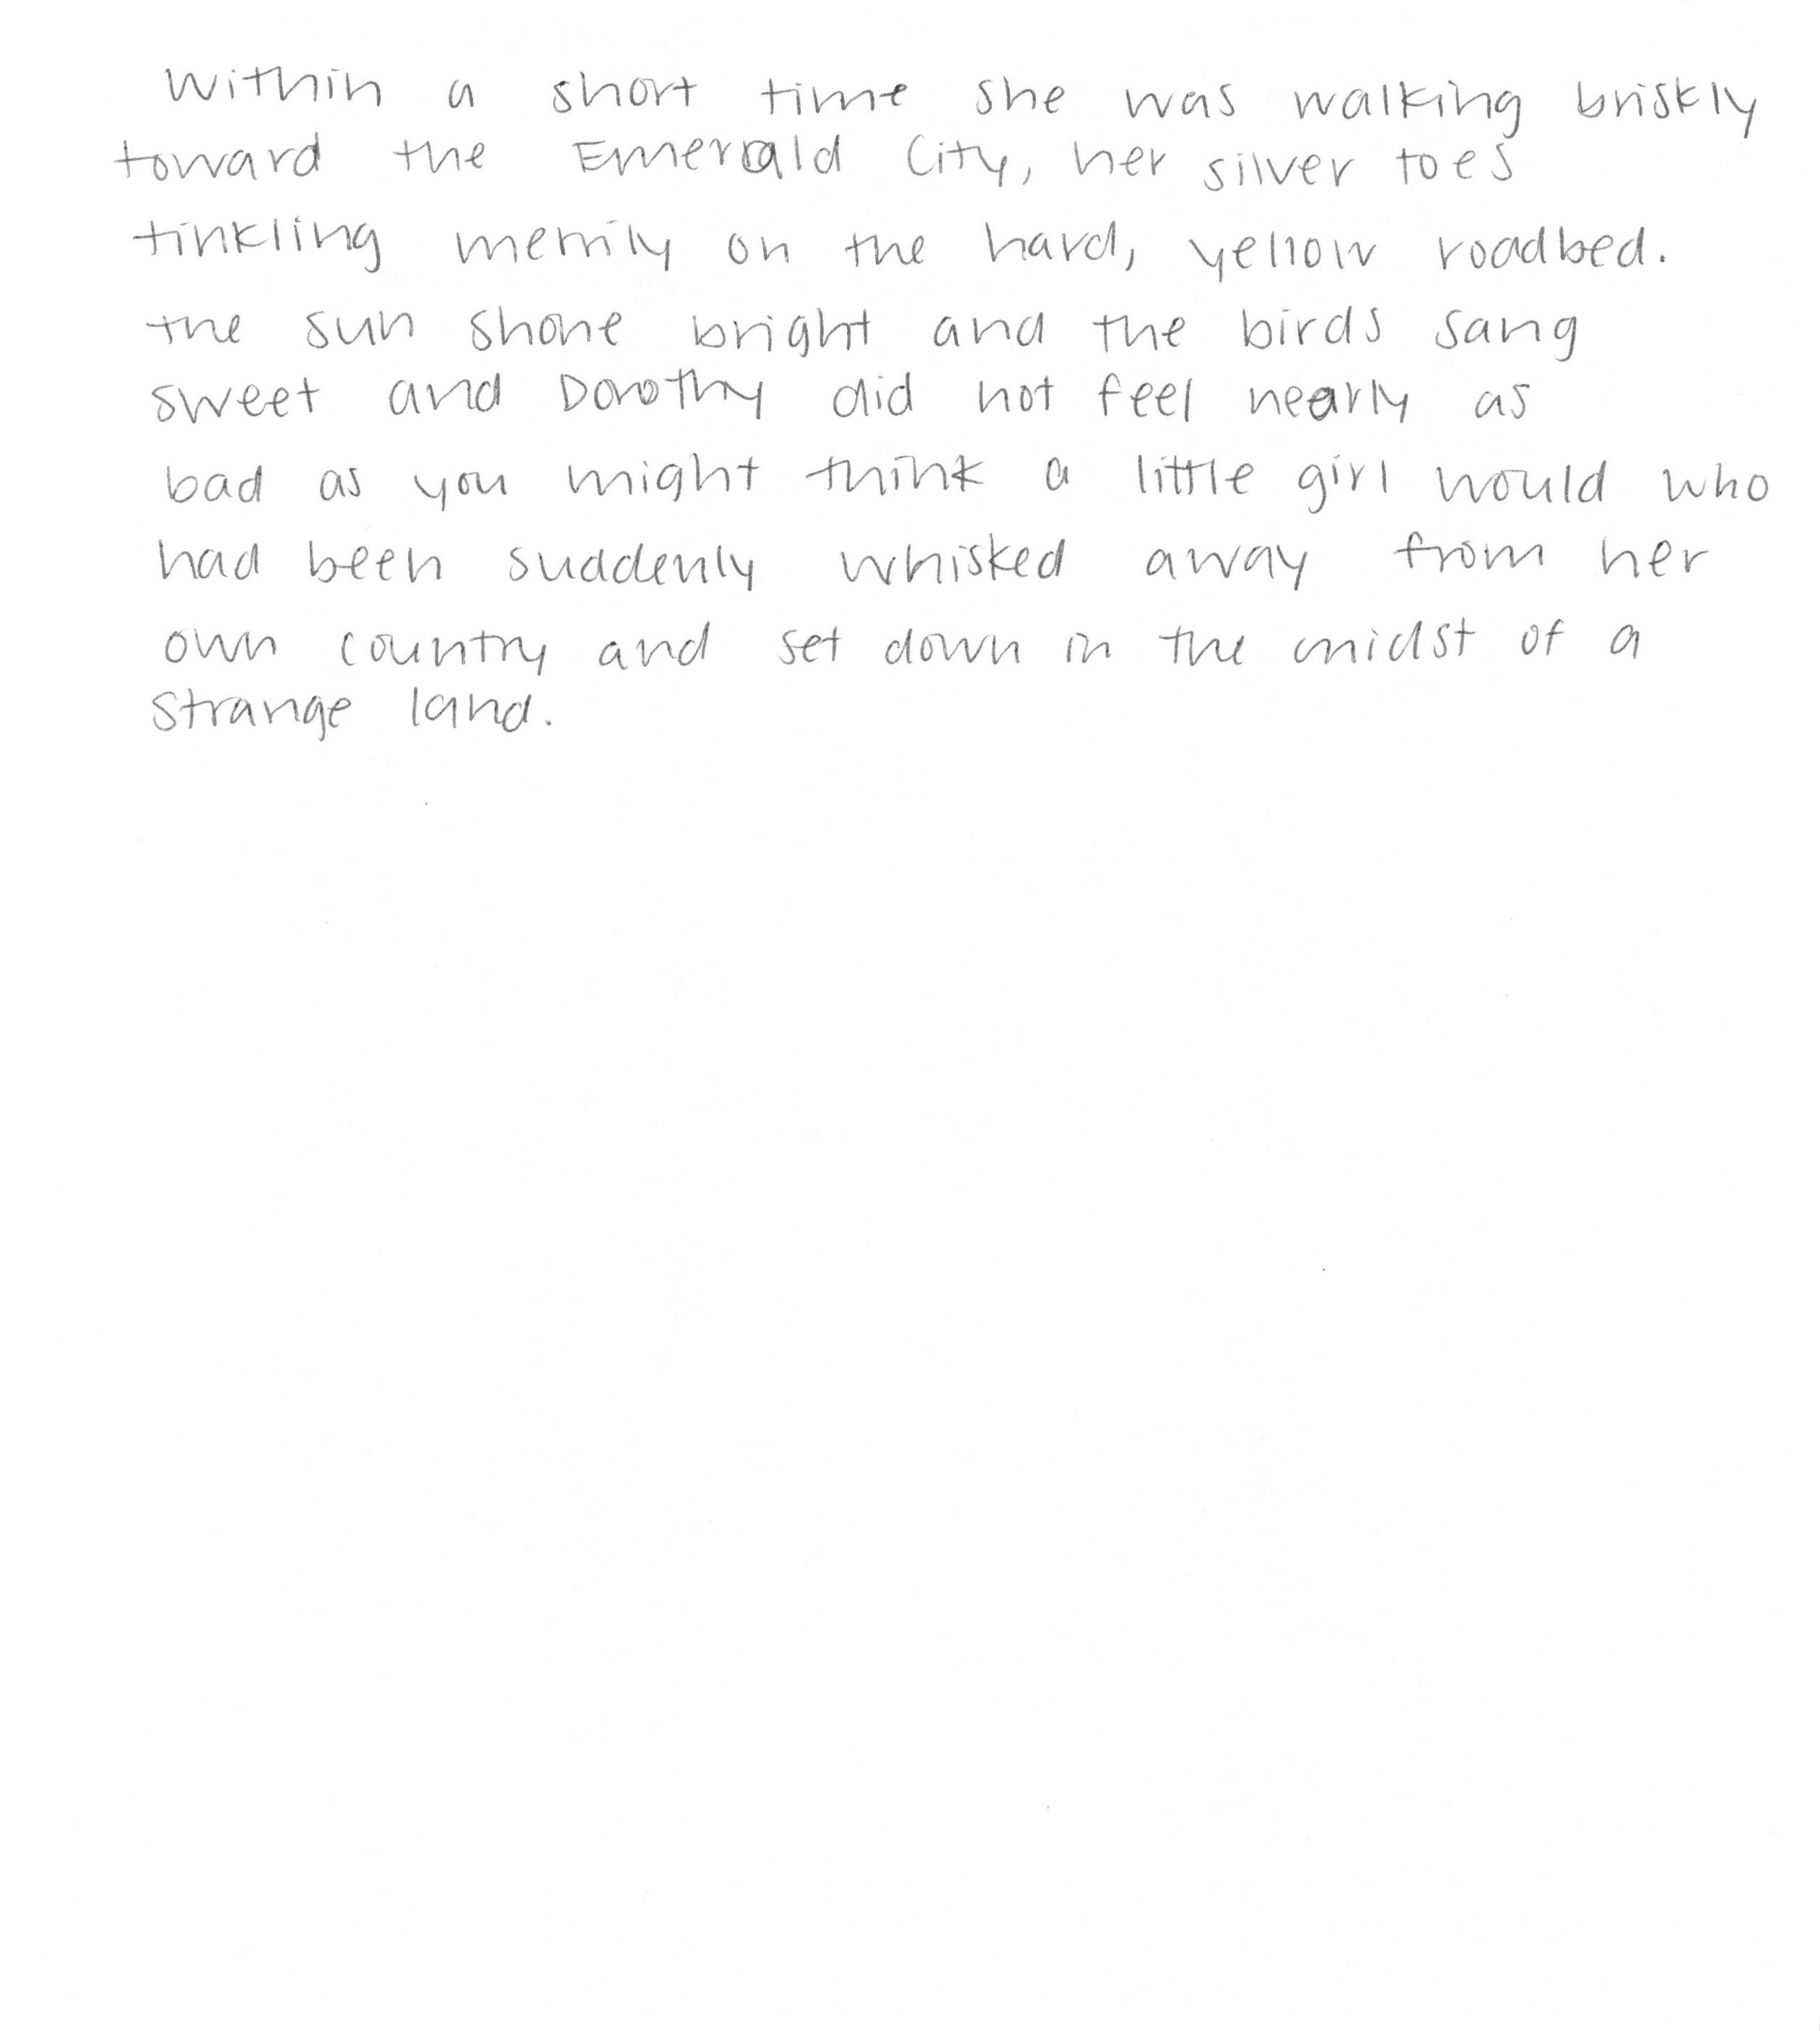 Within a short time she was walking briskly
toward the Emerald City, her silver toes
tinkling merrily on the hard, yellow roadbed.
the sun shone bright and the birds sang
sweet and Dorothy did not feel nearly as
bad as you might think a little girl would who
had been suddenly whisked away from her
own country and set down in the midst of a
strange land.